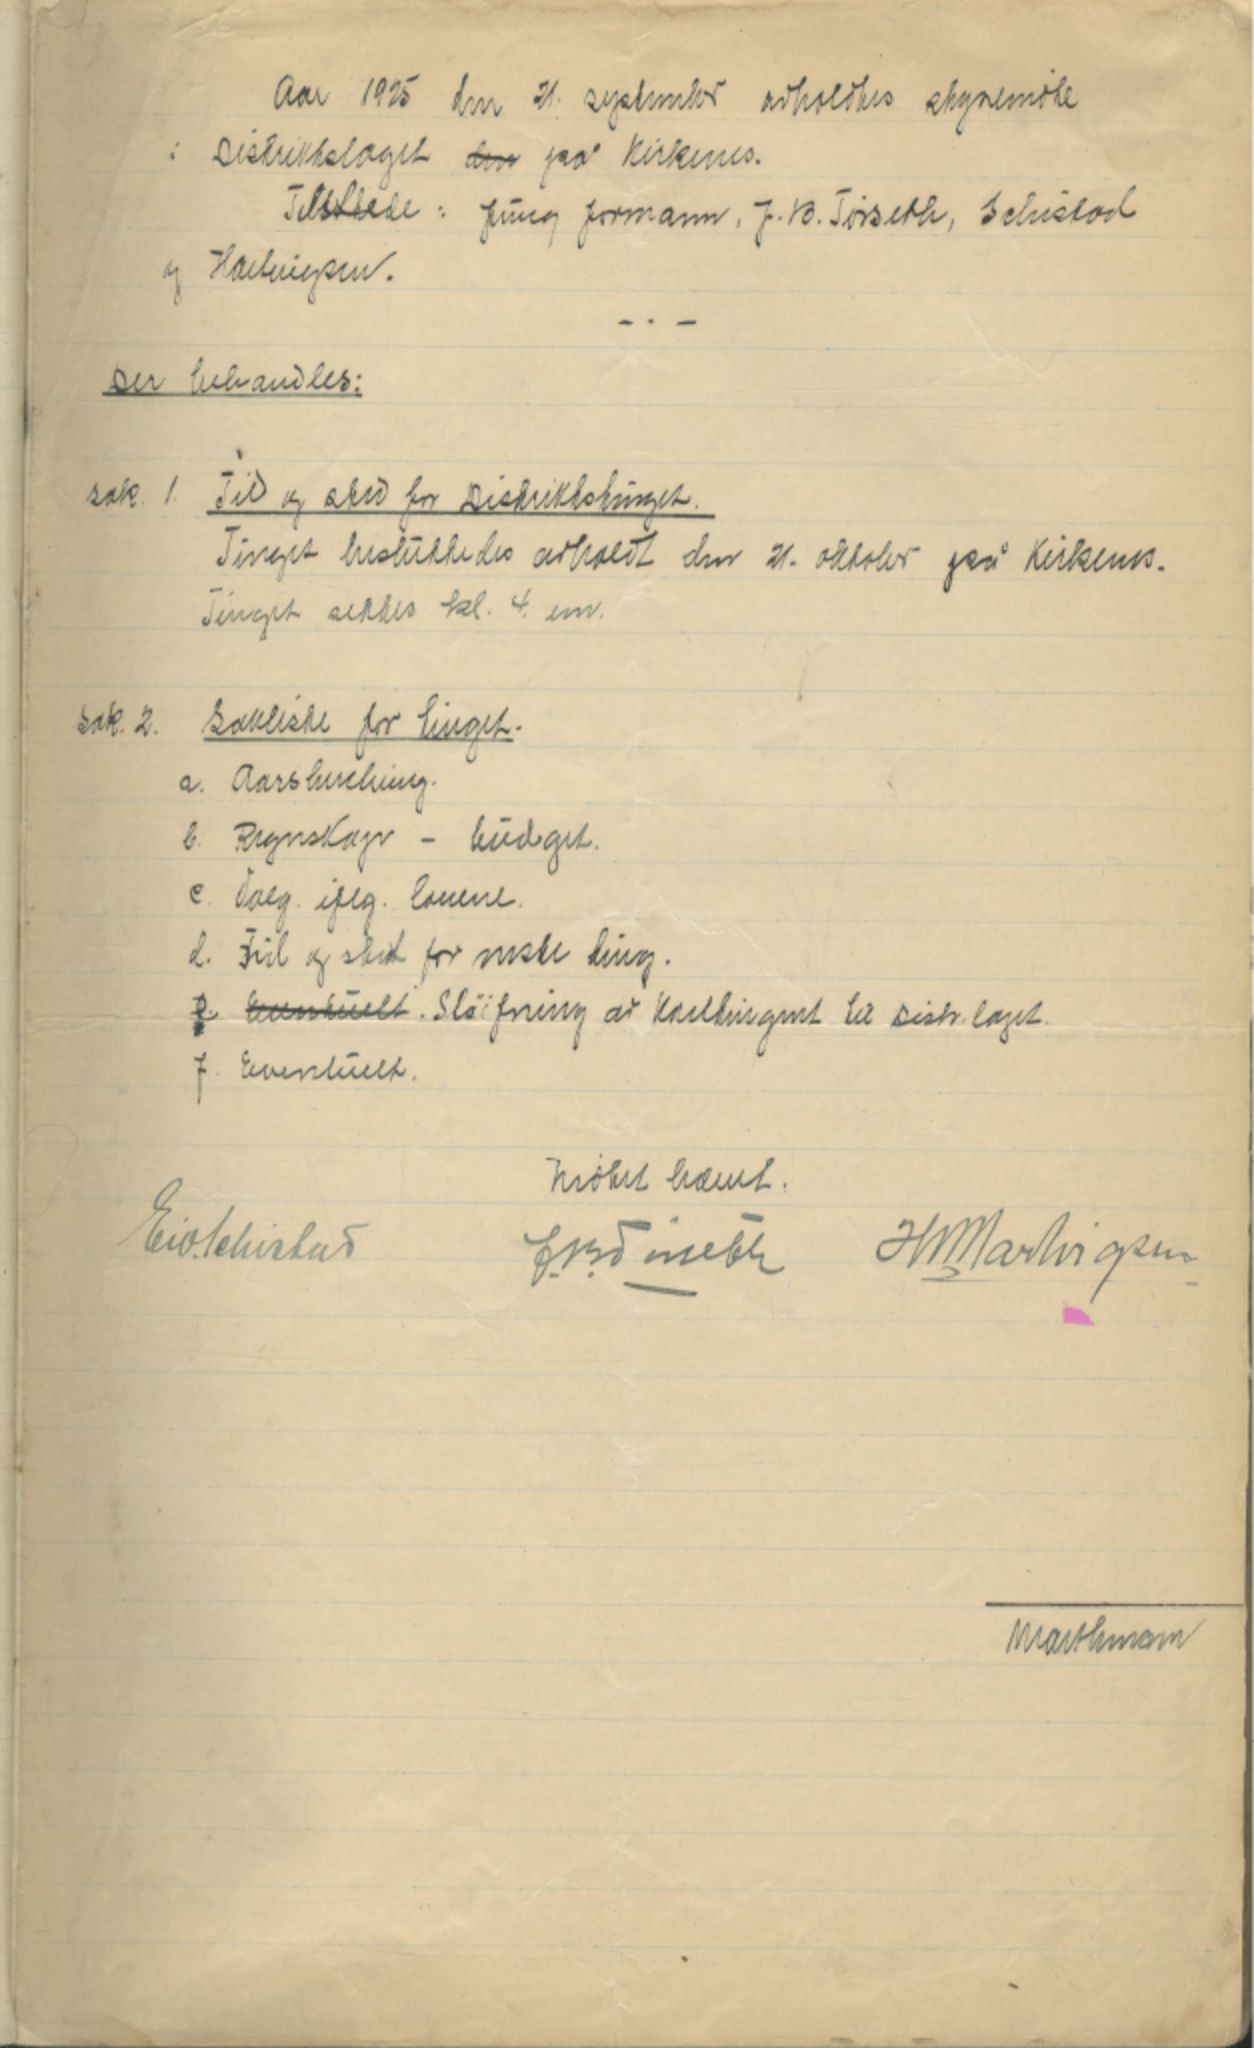 Aar 1925 den 21. september avholdtes styremöte
i Distriktslaget den paa Kirkenes.
Tilstede: fung formann, J. B. Tørseth, Schistad
og Hartvigsen.
- . -
Der behandles:
sak. 1. Tid og sted for Distriktstinget.
Tinget besluttedes avholdt den 21. oktober paa Kirkenes.
Tinget settes kl. 4. em.
Sak. 2. Sakliste for tinget.
a. Aarsberetning.
b. Regnskap - budget.
c. Valg. ifølg. lovene.
d. Tid og sted for neste ting.
e. Eventuelt. Sløifning av kontingent til Distr. laget.
f. Eventuelt.
Møtet hævet.
Eiv. Schistad
H Martvigsen